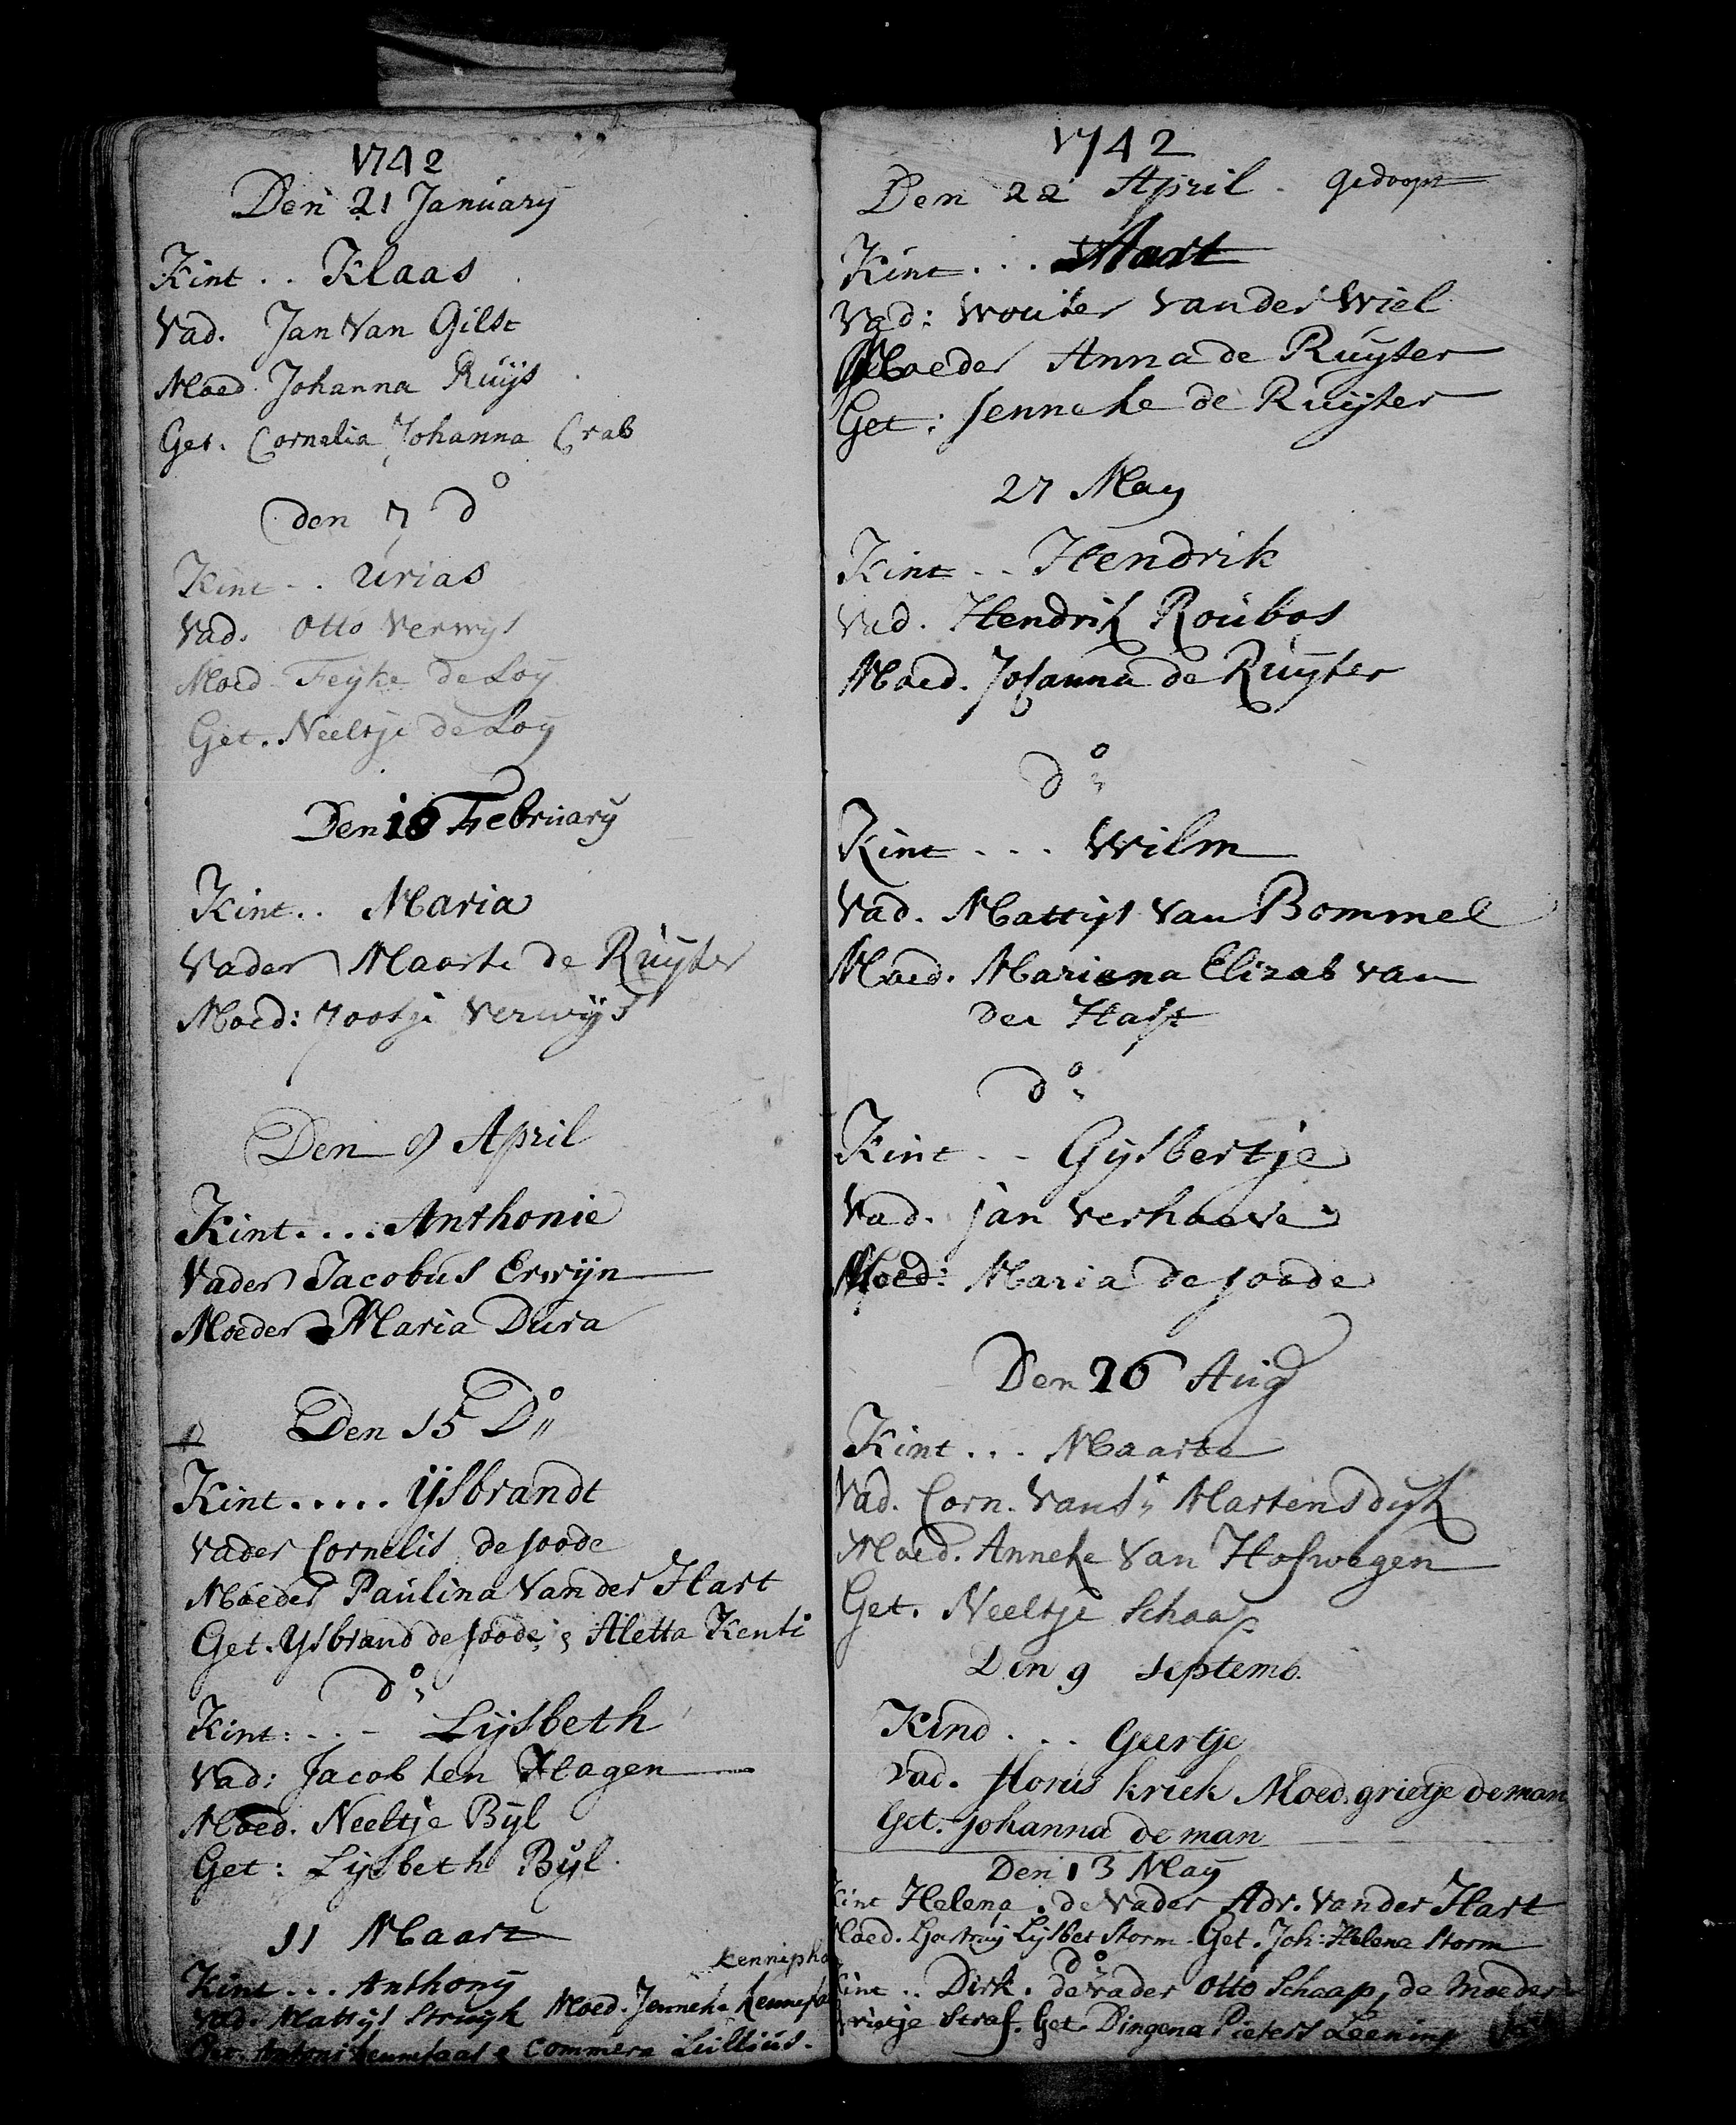 1742
Den 21 January
Kint .. Klaas
Vad. Jan Van Gilst
Moed. Johanna Ruijs
Get. Cornelia Johanna Crab
den 7 do
Kint .. Urias
Vad. Otto Verwijs
Moed Feyke de Loy
Get. Neeltje de Loy
Den 18 February
Kint.. Maria
Vader Maarte de Ruyter
Moed: Jootje Verwijs
Den 9 April
Kint.... Anthonie
Vader Jacobus Erwijn
Moeder Maria Dura
Den 15 Do
Kint..... ijsbrandt
Vader Cornelis de Joode
Moeder Paulina Van der Hart
Get. Ysbrand de Joode, & Aletta Kenti
do
Kint: .. - Lijsbeth
Vad: Jacob ten Hagen
Moed. Neeltje Bijl
Get: Lijsbeth Bijl.
11 Maart
Kint... Anthony
Vad. Mattijs Struyk Moed. Jenneke
Get. Antoni & Commera
1742
Den 22 April. gedoopt
Kint... Aart
Vad: Wouter Vander Wiel
Moeder Anna de Ruyter
Get: Jenneke de Ruyter
27 May
Kint .. Hendrik
Vad. Hendrik Roubos
Moed. Johanna de Ruyter
do
Kint ... Wilm
Vad. Mattijs Van Bommel
Moed. Mariana Elizab van
der Hast
do
Kint .. Gijsbertje
Vad. Jan Verhoeve
Moed: Maria de Joode
Den 26 Aug
Kint ... Maarte
Vad. Corn. Van St Martensdijk
Moed. Anneke Van Hofwegen
Get. Neeltje Schaap
Den 9 Septemb.
Kind ... Geertje
Vad. Florus kriek Moed. grietje de man
Get. Johanna de man
Den 13 May
Kint Helena. de Vader Adr. Van der Hart
Moed. Lijsbet Storm. Get. Joh: Helena Storm
do
Kint .. Dirk. de Vader Otto Schaap, de Moeder
Grietje Straf. Get. Dingena Pieters